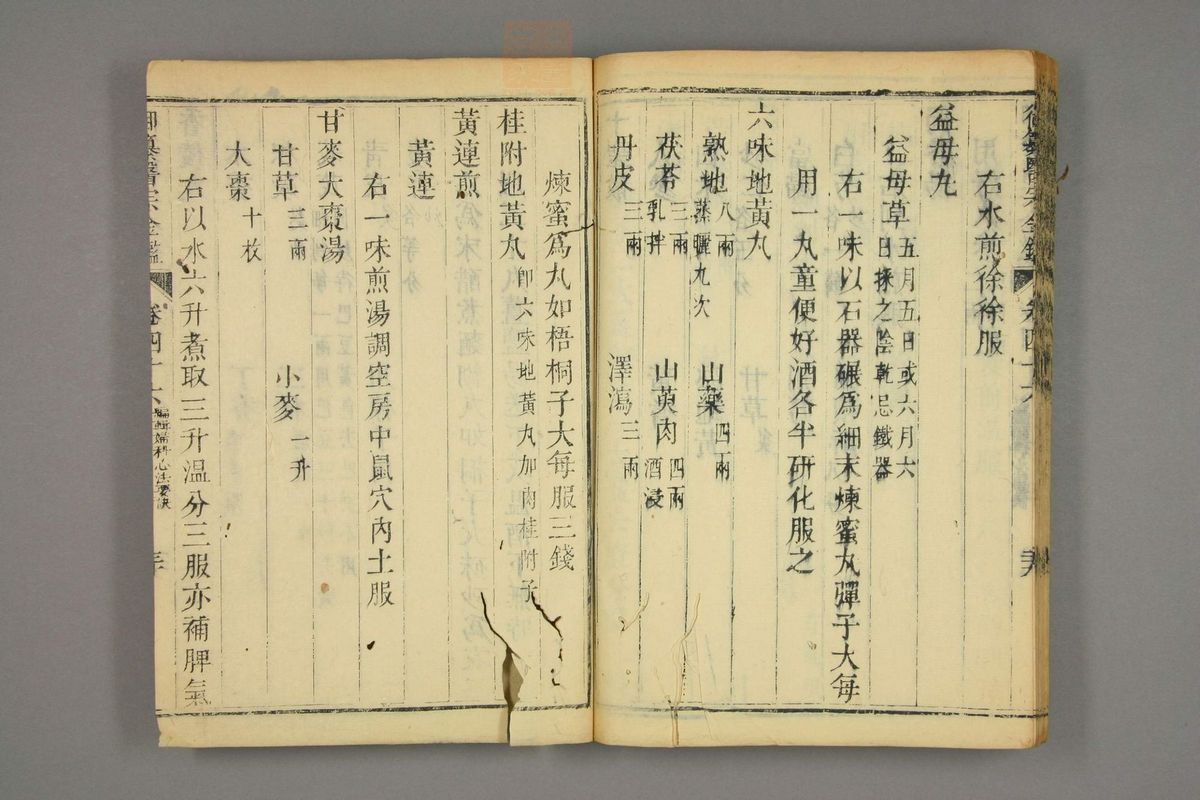 右水煎徐徐服
益母丸
益母草 五月五日或六月六日採之陰乾忌鐵器
右一味以石器碾爲細末煉蜜丸彈子大每
用一丸童便好酒各半研化服之
六味地黃丸
熟地 八兩蒸曬九次 山藥 四兩
茯苓 三兩乳拌 山萸肉 四兩酒浸
丹皮 三兩 澤瀉 三兩
煉蜜爲丸如梧桐子大每服三錢
桂附地黃丸 卽六味地黃丸加肉桂附子
黃連煎
黃連
右一味煎湯調空房中鼠穴內土服
甘麥大棗湯
甘草 三兩 小麥 一升
大棗 十枚
右以水六升煮取三升溫分三服亦補脾氣
御纂醫宗金鑑 卷四十六 編輯婦科心法要訣